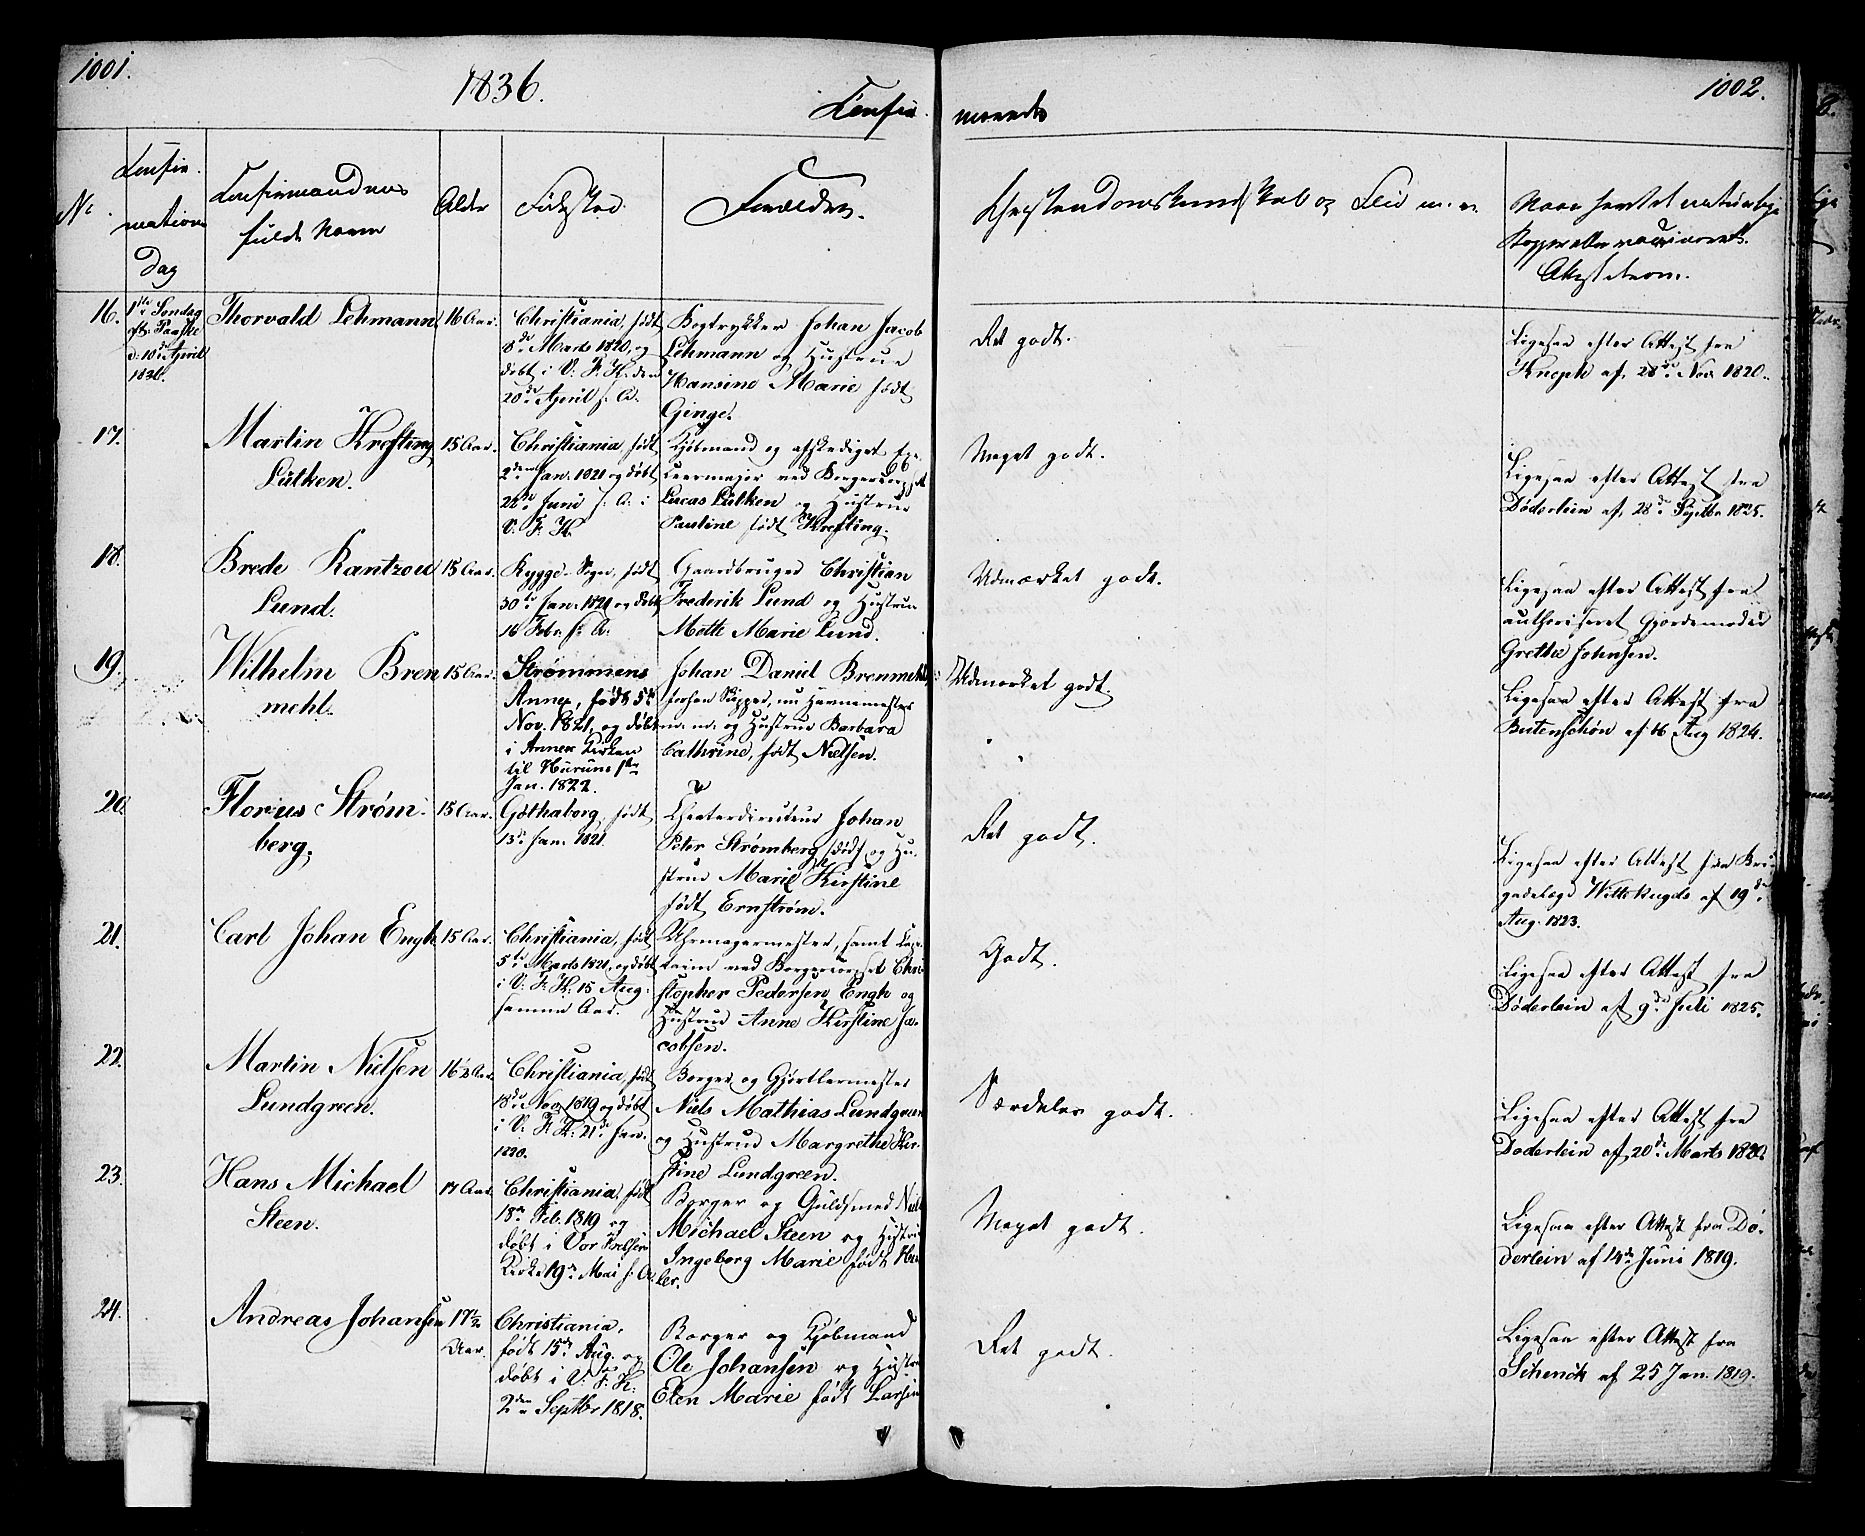 1001.
1836.
Confir-
mationsdag
No.
Confirmandens
fulde Navn
Alder
Fødested
Forældre.
16.
1ste Søndag
eft. Paaske
d. 10de April
1836.
Thorvald Lehmann
16 Aar.
Christiania, født
8de Marts 1820, og
døbt i V. F. K. den
20de April s. A.
Bogtrykker Johan Jacob
Lehmann og Hustrue
Hansine Marie født
Ginge.
17.
Martin Krefting
Lütken.
15 Aar.
Christiania, født
2den Jan. 1821 og døbt
22de Juni s. A. i
V. F. K.
Kjøbmand og afskediget
ved Borgercorpset
Lucas Lütken og Hustrue
Pauline født Krefting.
18.
Brede Rantzou
Lund.
15 Aar.
Rygge Sogn, født
30te Jan. 1821 og døbt
16 Febr. s. A.
Gaardbruger Christian
Frederik Lund og Hustrue
Mette Marie Lund.
19.
Wilhelm Brem
mehl.
15 Aar.
Strømmens
Annex, født 5te
Nov. 1821, og døbt
i Annex Kirken
til Hurum 1ste
Jan. 1822.
Johan Daniel Bremmehl,
forhen Skipper, nu Havnemester
m. m. og Hustrue Barbara
Cathrine, født Nielsen.
20.
Florius Strøm-
berg.
15 Aar.
Gøthaborg, født
13de Jan. 1821.
Theaterdirecteur Johan
Peter Strømberg, født og Hu-
strue Marie Kirstine
født Ernstrøm.
21.
Carl Johan Engh
15 Aar.
Christiania, født
5te Marts 1821, og døbt
i V. F. K. 15 Aug.
samme Aar.
Uhrmagermester, samt Cap-
tain ved Borgercorpset Chri-
stopher Pedersen Engh og
Hustrue Anne Kirstine Ja-
cobsen.
22.
Martin Nielsen
Lundgreen.
16½ Aar.
Christiania, født
18de Nov. 1819 og døbt
i V. F. K. 21de Jan.
1820.
Borger og Gjørtlermester
Niels Mathias Lundgreen
og Hustrue Margrethe Kir-
stine Lundgreen.
23.
Hans Michael
Steen.
17 Aar.
Christiania, født
18de Feb. 1819 og
døbt i Vor Frelsers
Kirke 19de Mai s. A.
Borger og Guldsmed Niels
Michael Steen og Hustrue
Ingeborg Marie født
24.
Andreas Johansen
17½
Aar.
Christiania,
født 15de Aug. og
døbt i V. F. K.
2den Septbr 1818.
Borger og Kjøbmand
Ole Johansen og Hustrue
Elen Marie født Larsen
1002.
merede
Christendomskundskab og Flid m. v.
Naar havt de naturlige
Kopper eller vaccineret.
Attesterne.
Ret godt.
Ligesaa efter Attest fra
af 28de Nov. 1820.
Meget godt.
Ligesaa efter Attest fra
Døderlein af 28de Septbr 1825.
Udmærket godt.
Ligesaa efter Attest fra
authoriseret Gjordemoder
Grethe Johnsen.
Udmærket godt.
Ligesaa efter Attest fra
Butenschøn af 16 Aug 1824.
Ret godt.
Ligesaa efter Attest fra Bri-
gadelæge Wittekugel af 19de
Aug. 1823.
Godt.
Ligesaa efter Attest fra
Døderlein af 9de Juli 1825.
Særdeles godt.
Ligesaa efter Attest fra
Døderlein af 20de Marts 1820.
Meget godt.
Ligesaa efter Attest fra Dø-
derlein af 14de Juni 1819.
Ret godt.
Ligesaa efter Attest fra
Schenck af 25 Jan. 1819.